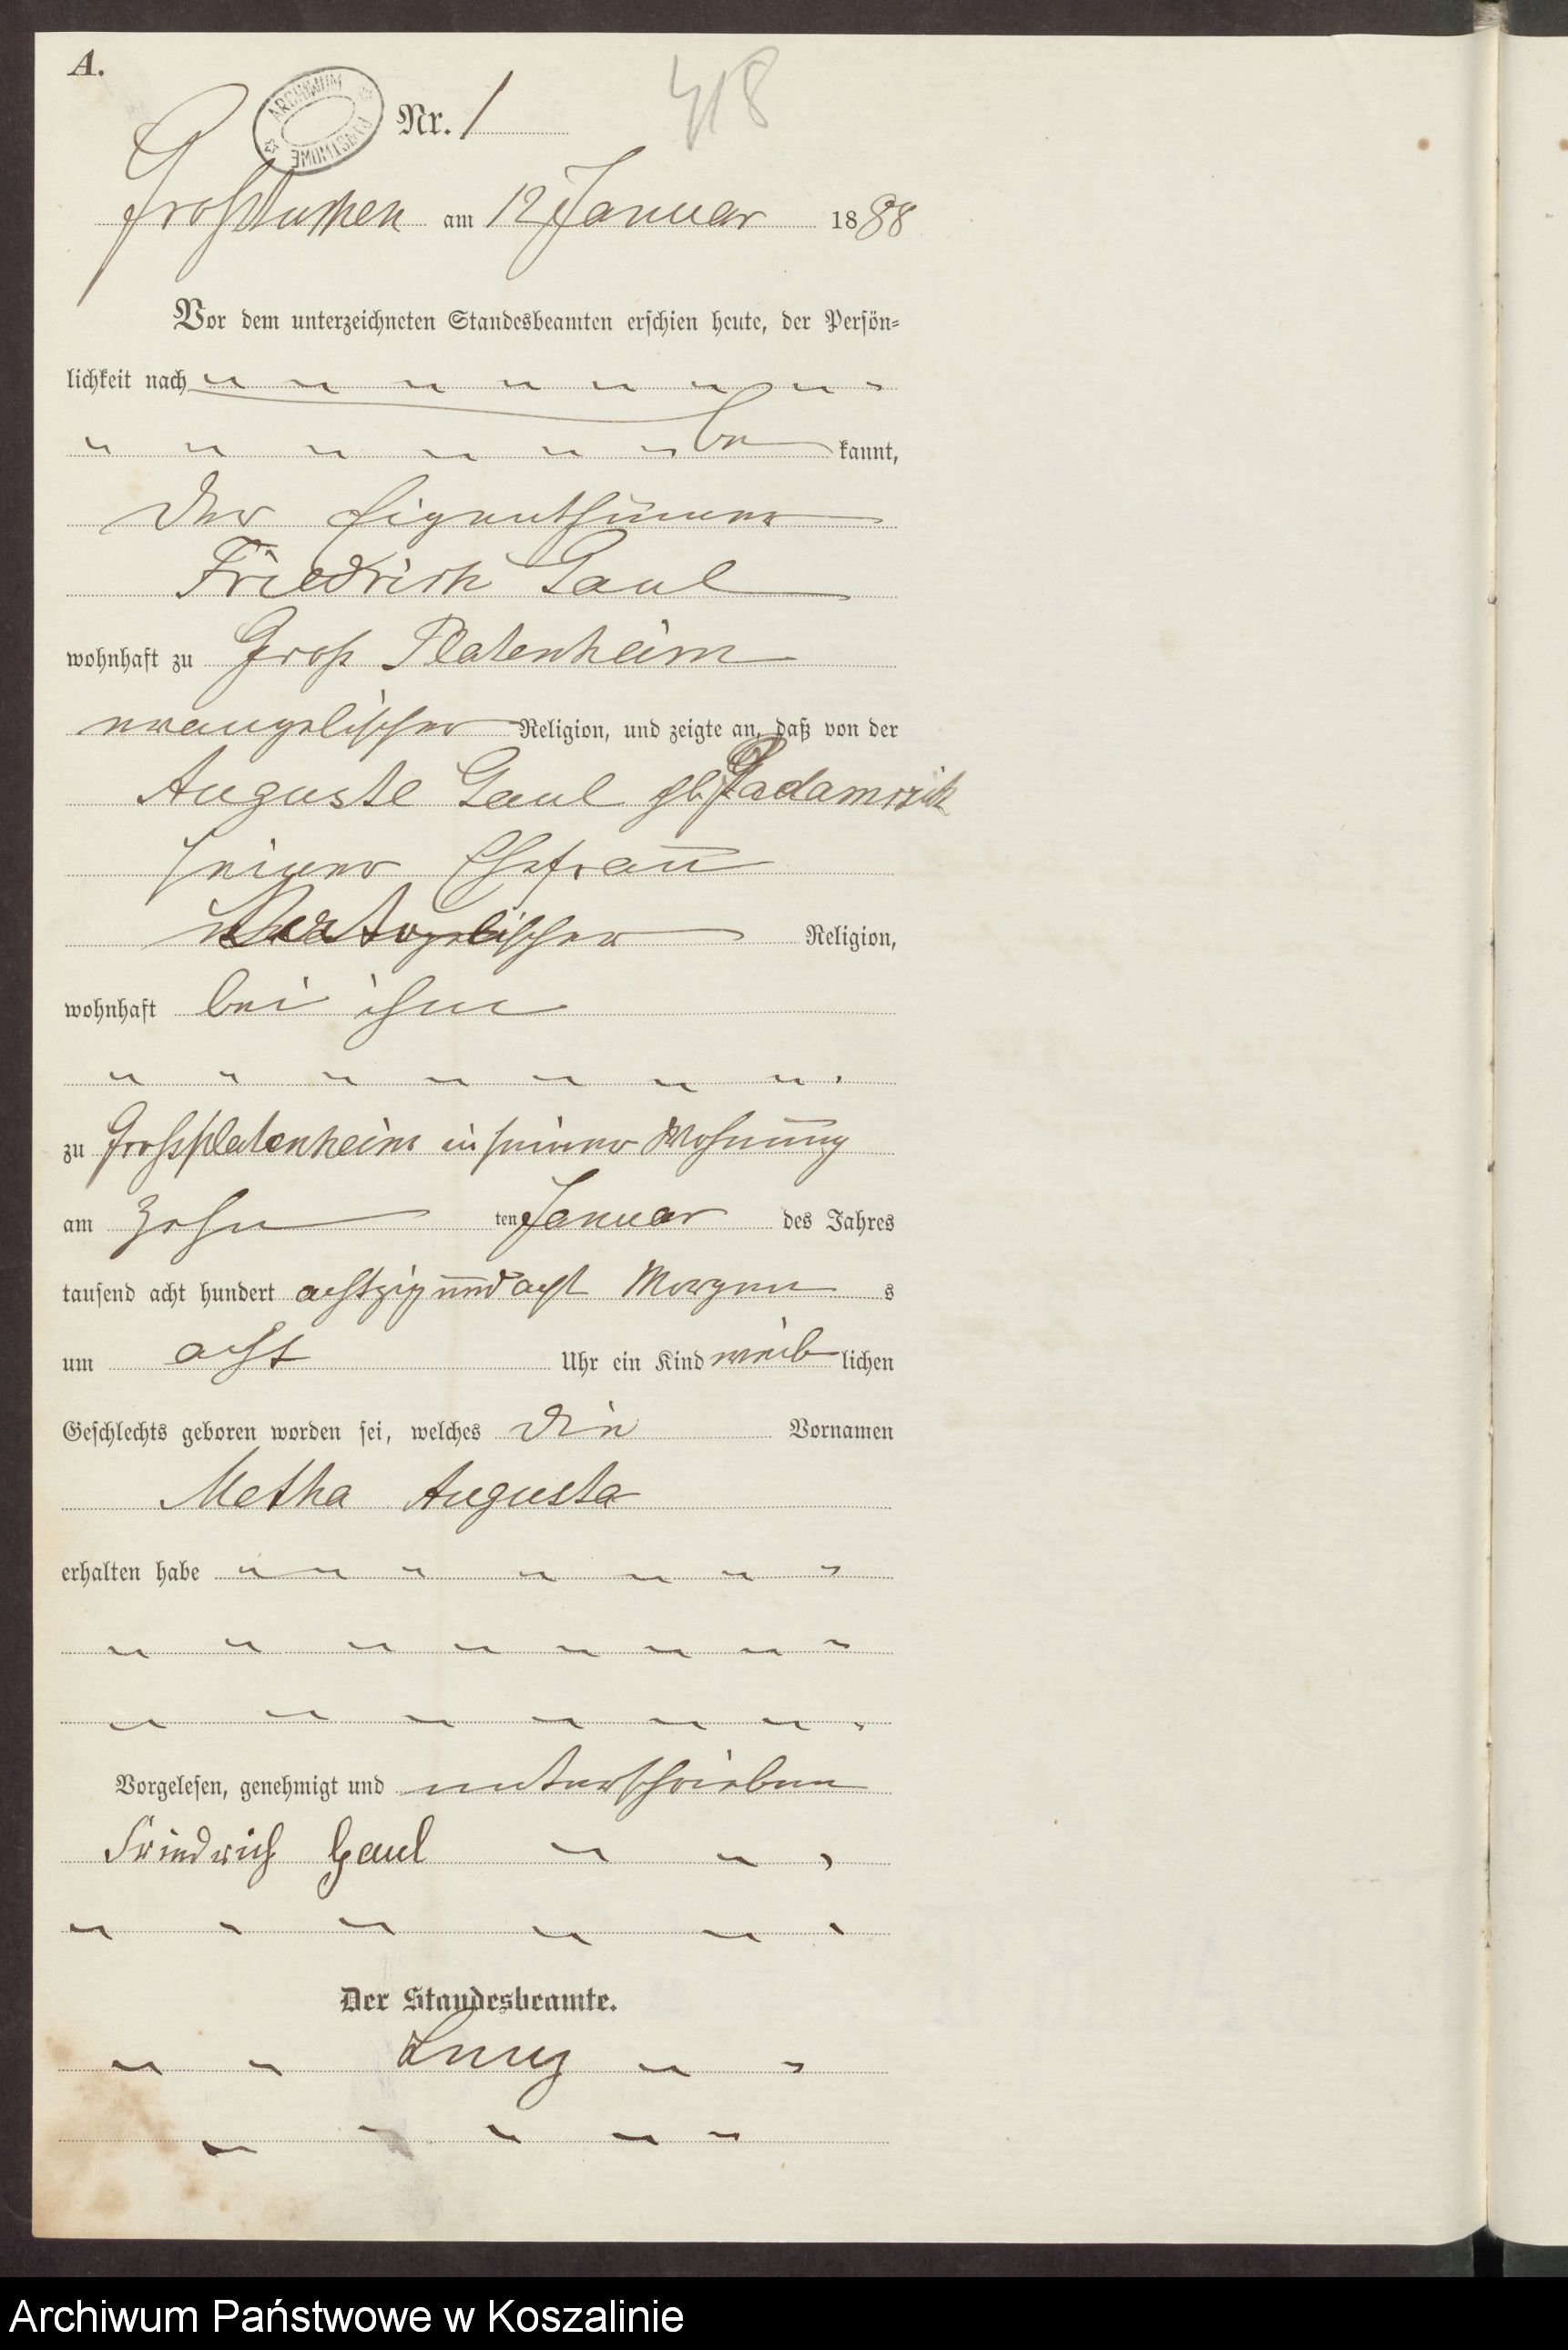 A.
ARCHIWUM PAŃSTWOWE
Nr. 1
418
Großtuchen am 12 Januar 1888
Vor dem unterzeichneten Standesbeamten erschien heute, der Persön-
lichkeit nach
be kannt,
der Eigenthümer
Friedrich Gaul
wohnhaft zu Groß Platenheim
evangelischer Religion, und zeigte an, daß von der
Auguste Gaul gb.
seiner Ehefrau
Religion,
wohnhaft bei ihm
zu Großplatenheim in seiner Wohnung
am zehn ten Januar des Jahres
tausend acht hundert achtzig und acht Morgen s
um acht Uhr ein Kind weib lichen
Geschlechts geboren worden sei, welches die Vornamen
Metha Augusta
erhalten habe
Vorgelesen, genehmigt und unterschrieben
Friedrich Gaul
Der Standesbeamte.
Archiwum Państwowe w Koszalinie